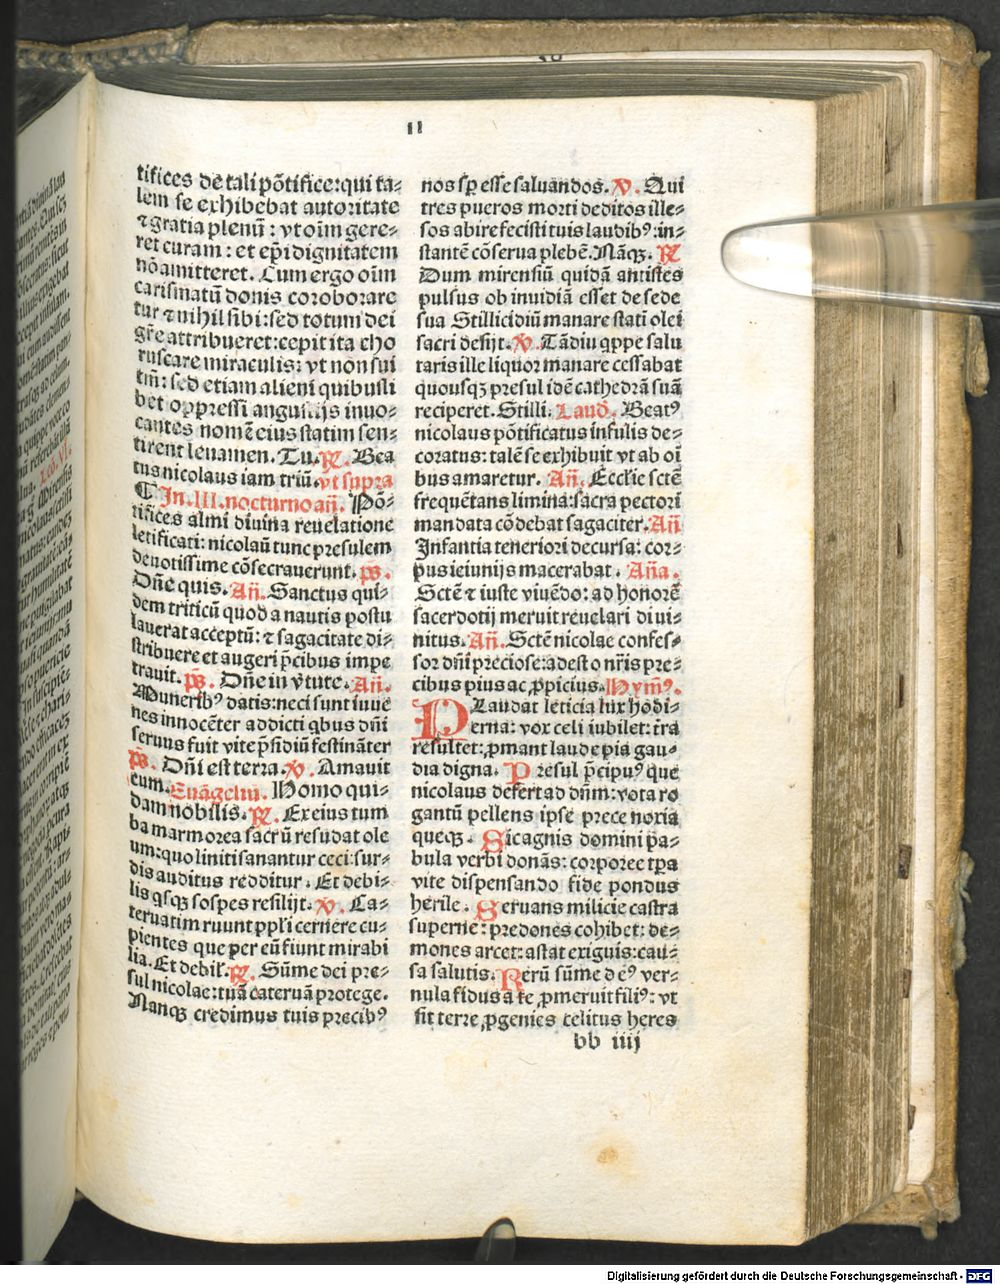 11
tifices de tali põtifice: qui ta⸗
lem se exhibebat autoritate
⁊ gratia plenũ: vt oĩm gere⸗
ret curam: et ep̃i dignitatem
nõ amitteret. Cum ergo oĩm
carismatũ donis coroborare
tur ⁊ nihil sibi: sed totum dei
gr̃e attribueret: cepit ita cho
ruscare miraculis: vt non sui
tm̃: sed etiam alieni quibusli
bet oppressi angustijs inuo⸗
cantes nomẽ eius statim sen⸗
tirent leuamen. Tu. ℟. Bea
tus nicolaus iam triũ. vt supra
¶ In. III. nocturno añ. Põ⸗
tifices almi diuina reuelatione
letificati: nicolaũ tunc presulem
deuotissime cõsecrauerunt. p̃s.
Dñe quis. Añ. Sanctus qui⸗
dem triticũ quod a nautis postu
lauerat acceptũ: ⁊ sagacitate di⸗
stribuere et augeri p̃cibus impe
trauit. p̃s. Dñe in v̾tute. Añ.
Muneribꝰ datis: neci sunt iuue
nes innocẽter addicti qbus dñi
seruus fuit vite p̃sidiũ festinãter
p̃s. Dñi est terra. ℣. Amauit
eum. Euãgeliũ. Homo qui⸗
dam nobilis. ℟. Ex eius tum
ba marmorea sacrũ resudat ole
um: quo liniti sanantur ceci: sur⸗
dis auditus redditur. Et debi⸗
lis qsqꝫ sospes resilijt. ℣. Ca⸗
teruatim ruunt pp̃li cernere cu⸗
pientes que per eũ fiunt mirabi
lia. Et debil̾. ℟. Sũme dei pre⸗
sul nicolae: tuã cateruã protege.
Nanqꝫ credimus tuis precibꝰ
nos sp̃ esse saluandos. ℣. Qui
tres pueros morti deditos ille⸗
sos abire fecisti tuis laudibꝰ: in⸗
stantẽ cõserua plebẽ. Nãqꝫ. ℟
Dum mirensiũ quidã antistes
pulsus ob inuidiã esset de sede
sua Stillicidiũ manare statĩ olei
sacri desijt. ℣. Tãdiu qppe salu
taris ille liquor manare cessabat
quousqꝫ presul idẽ cathedrã suã
reciperet. Stilli. Laud̾. Beatꝰ
nicolaus põtificatus infulis de⸗
coratus: talẽ se exhibuit vt ab oĩ
bus amaretur. Añ. Ecclie sctẽ
frequẽtans limina: sacra pectori
mandata cõdebat sagaciter. Añ
Infantia teneriori decursa: cor⸗
pus ieiunijs macerabat. Aña.
Sctẽ ⁊ iuste viuẽdo: ad honorẽ
sacerdotij meruit reuelari diui⸗
nitus. Añ. Sctẽ nicolae confes⸗
sor dñi preciose: adesto nr̃is pre⸗
cibus pius ac ꝓpicius. Hymꝰ.
PLaudat leticia lux hõdi⸗
erna: vox celi iubilet: t̃ra
resultet: ꝓmant laude pia gau⸗
dia digna. Presul p̃cipuꝰ que
nicolaus defert ad dñm: vota ro
gantũ pellens ipse prece noxia
queqꝫ. Sic agnis domini pa⸗
bula verbi donãs: corporee tp̃a
vite dispensando fide pondus
herile. Seruans milicie castra
superne: predones cohibet: de⸗
mones arcet: astat exiguis: cau⸗
sa salutis. Rerũ sũme deꝰ ver⸗
nula fidus a te ꝓmeruit filiꝰ: vt
sit terre ꝓgenies celitus heres
bb iiij
Digitalisierung gefördert durch die Deutsche Forschungsgemeinschaft - DFG